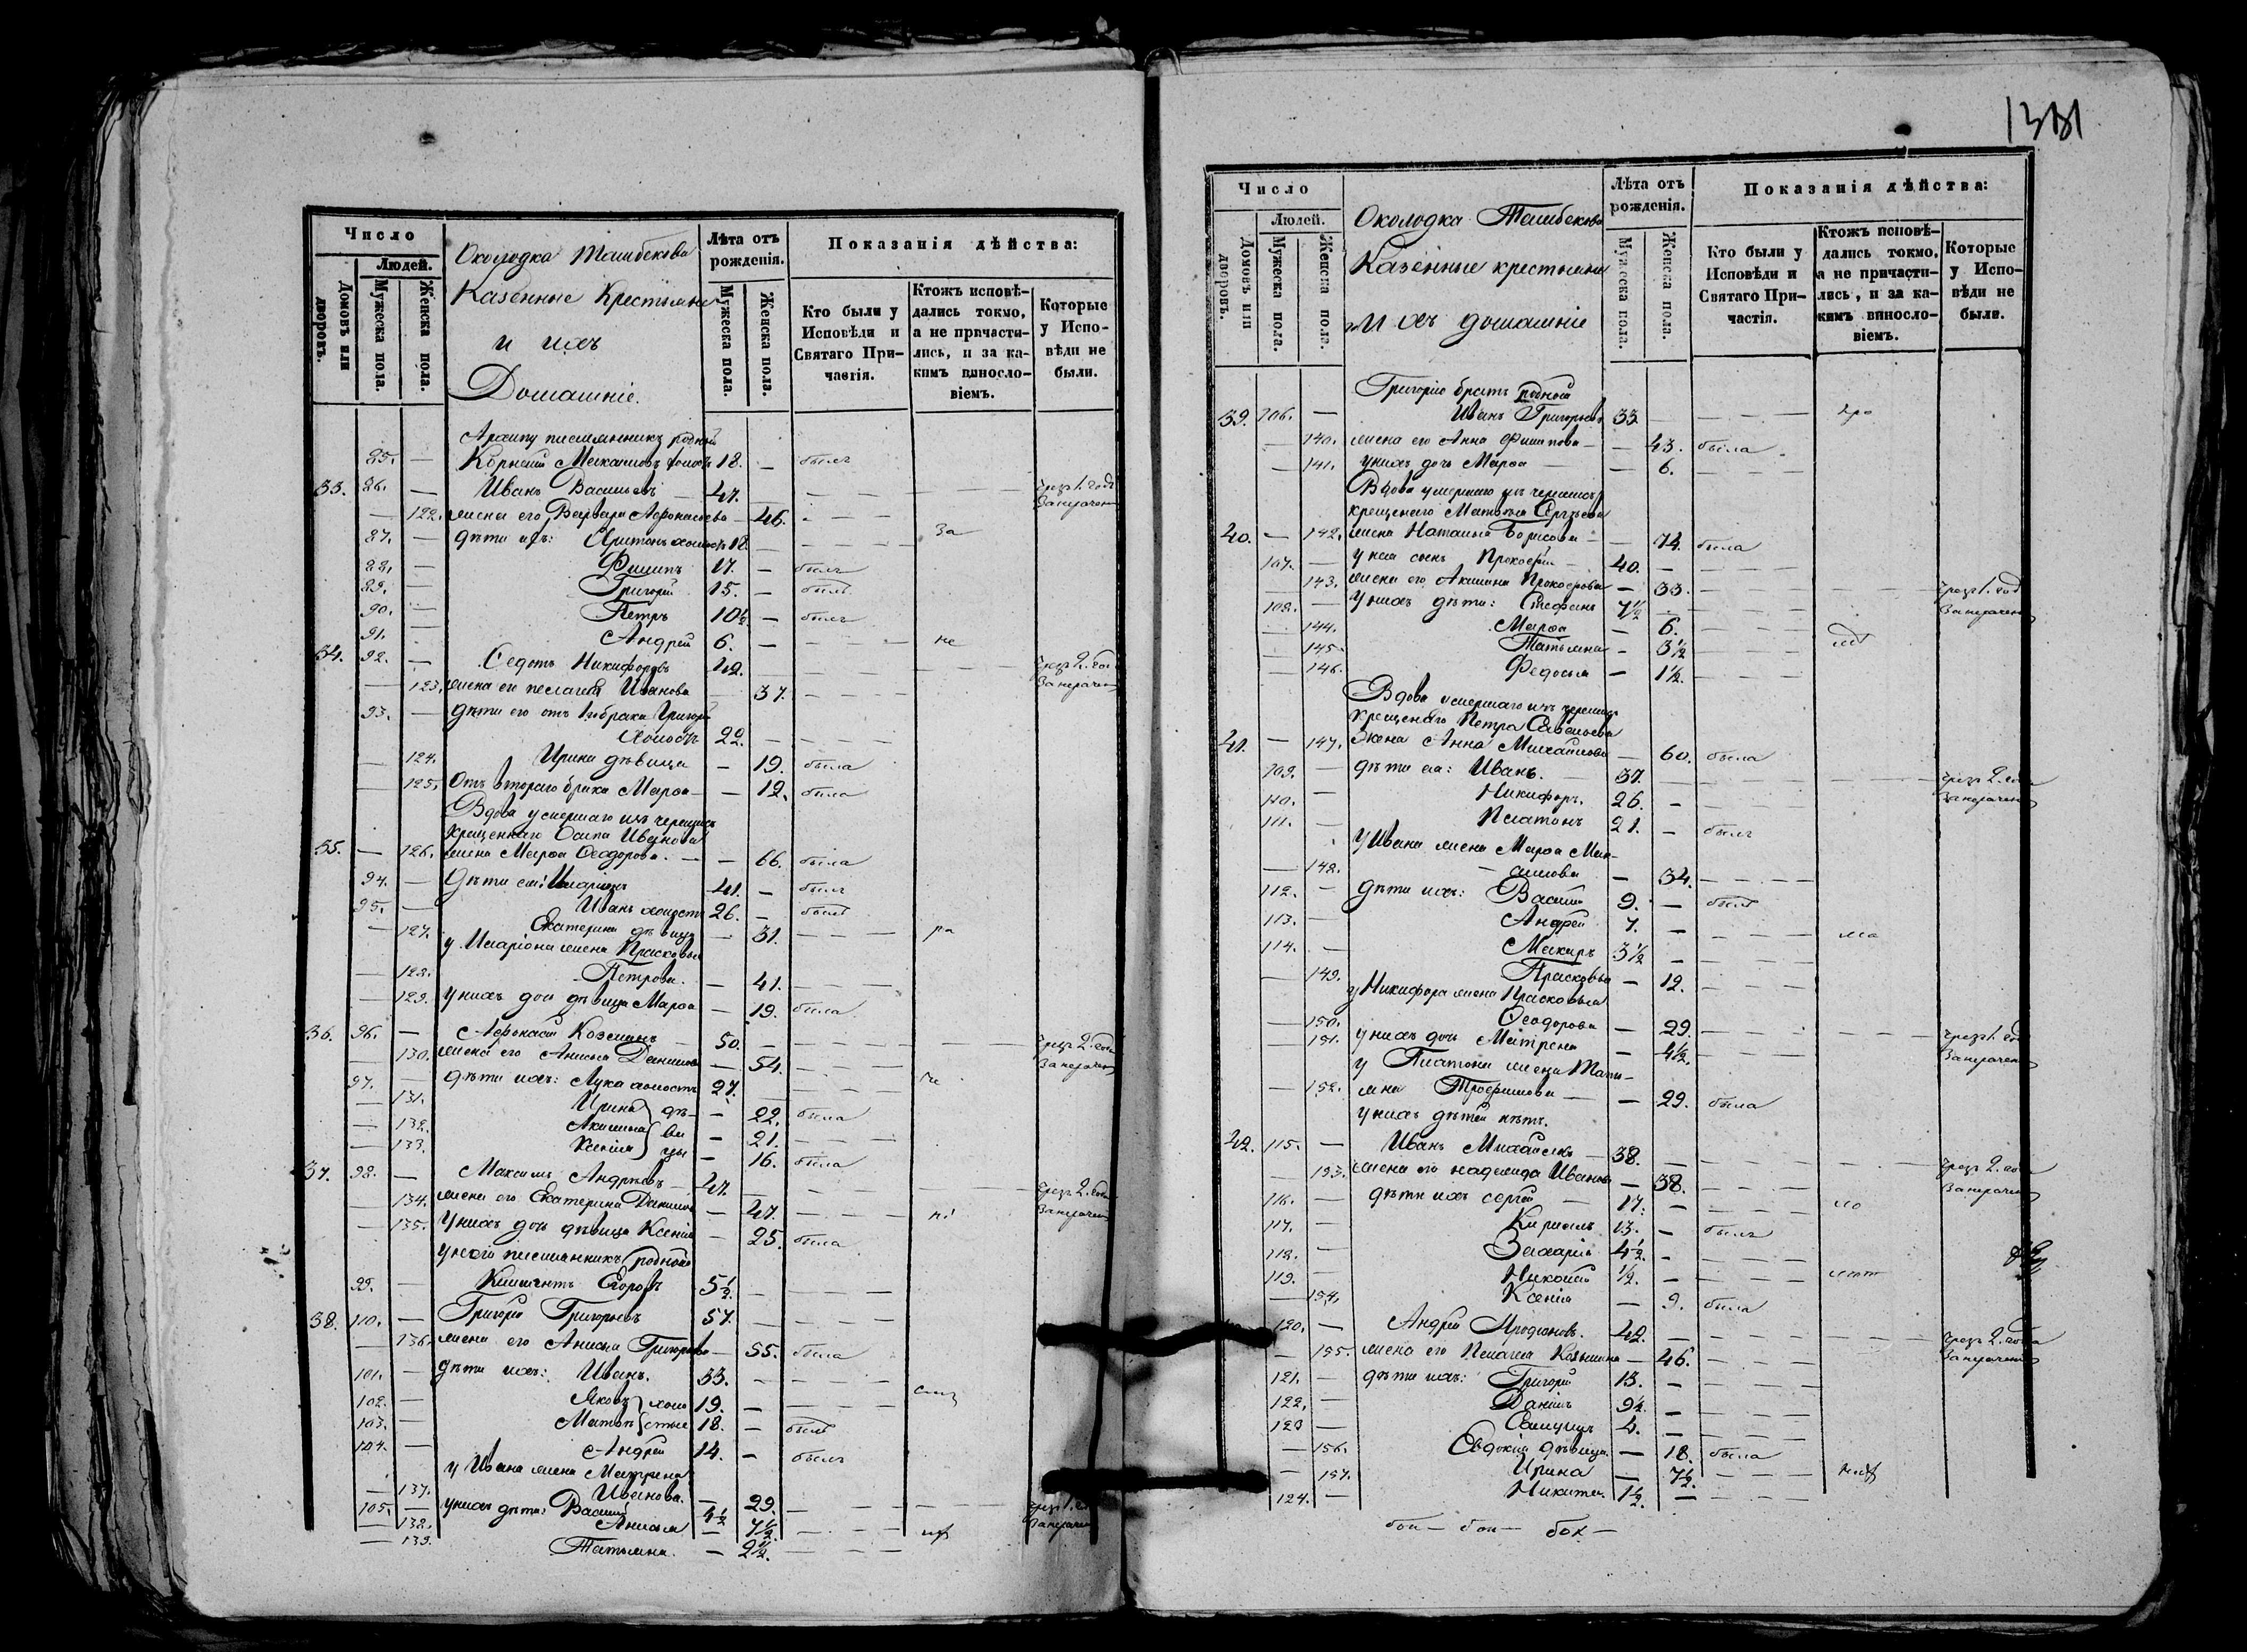 Число
Людей.
Домовъ или дворовъ.
Мужеска пола.
Женска пола.
Околодка Ташбекова
Казенные Крестьяне
и ихъ
Домашніе.
Лѣта отъ рожденія.
Мужеска пола
Женска пола.
Показанія дѣйства:
Кто были у Исповѣди и Святаго Причастія.
Ктожъ исповѣдались токмо, а не причастились, и за какимъ винословіемъ.
Которые у Исповѣди не были.
Архипу племянникъ родной
85. — 18. — былъ
33. 86. — Иванъ Васильевъ 47.
— 122. жена его Варвара Афонасьева — 46.
87. — дѣти ихъ: Харитонъ холостъ 18. За
88. — Филипъ 17. — былъ
89. — Григорій 15. — былъ
90. — Петръ 10½ — былъ
91. Андрей 6. — не
34. 92. — Федотъ Никифоровъ 42.
— 123. жена его Пелагея Иванова — 37.
93. — дѣти его отъ 1го брака Григорій
Холостъ 22.
— 124. Ирина дѣвица — 19. была
— 125. Отъ втораго брака Марѳа — — 12. была
Вдова умершаго изъ черемисъ
крещеннаго Осипа Иванова
35. — 126. жена Марѳа Ѳеодорова. — — 66. была
94. — Дѣти ея: Иларіонъ 41. — былъ
95. — Иванъ холостъ 26. — былъ
— 127. Екатерина дѣвица — 31. ра
у Иларіона жена Прасковья
— 128. Петрова. — 41.
— 129. у нихъ дочь дѣвица Марѳа — 19. была
36. 96. — Афонасій Козминъ 50.
— 130. жена его Анисья Данилова — 54.
97. — дѣти ихъ: Лука холостъ 27.
— 131. Ирина — 22. была
— 132. Акилина — 21.
— 133. Ксенія — 16. была
дѣвицы
37. 98. — Максимъ Андреевъ — 47.
— 134. жена его Екатерина Данилова — 47.
— 135. у нихъ дочь дѣвица Ксенія — 25. была
у него племянникъ родной
99. — Климентъ Егоровъ 5½
38. 110. — Григорій Григорьевъ 57.
— 136. жена его Анисья Григорьева — 55. была
101. — дѣти ихъ: Иванъ. 33.
102. — Яковъ 19.
103. — 18. — былъ
холостые
104. — Андрей 14. — былъ
у Ивана жена Матрена
— 137. Иванова. — 29.
105. — у нихъ дѣти: Василій 4½
— 138. Анисья — 7½
— 139. Татьяна. — 2½.
Число
Людей.
Домовъ или дворовъ.
Мужеска пола.
Женска пола.
Околодка Ташбекова
Казенные крестьяне
И ихъ домашніе
Лѣта отъ рожденія.
Мужеска пола.
Женска пола.
Показанія дѣйства:
Кто были у Исповѣди и Святаго Причастія.
Ктожъ исповѣдались токмо, а не причастились, и за какимъ винословіемъ.
Которые у Исповѣди не были.
Григорію братъ родной
39. 106. — Иванъ Григорьевъ 33
— 140. жена его Анна Филипова — — 43. была
— 141. у нихъ дочь Марѳа — — 6.
Вдова умершаго изъ черемисъ
крещенаго Матвѣя Сергѣева
40. — 142. жена Наталья Борисова — — 74. была
107. — у нея сынъ Прокофій — 40. —
— 143. жена его Акилина Прокофьева — 33.
108. — У нихъ дѣти: Стефанъ 7½
— 144. Марѳа — 6.
— 145. Татьяна — 3½
— 146. Федосья — 1½.
Вдова умершаго изъ черемисъ
крещенаго Петра Савельева
41. — 147. Жена Анна Михайлова — 60. была
109. — дѣти ея: Иванъ. — 37.
110. — Никифоръ. 26. —
111. — Платонъ 21. — былъ
У Ивана жена Марѳа Мак-
— 148. симова — 34.
112. — дѣти ихъ: Василій 9. — былъ
113. — Андрей 7. —
114. — Макаръ 3½ —
— 149. Прасковья — 12.
у Никифора жена Прасковья
— 150. Ѳеодорова — 29.
— 151. у нихъ дочь Матрена — 4½.
у Платона жена Тать-
— 152. яна Трофимова — — 29. была
у нихъ дѣтей нѣтъ.
42. 115. — Иванъ Михайловъ — 38.
— 153. жена его надежда Иванова — 38.
116. — дѣти ихъ Сергій — 17.
117. — Кирилъ 13. — былъ
118. — Захарій 4½ —
119. — Николай ½. —
— 154. Ксенія — 9. была
120. — Андрей Иродіоновъ. 42.
— 155. жена его Пелагея Козмина — 46.
121. — дѣти ихъ: Григорій 13. —
122. — Данилъ 9½ —
123 — 4. —
— 156. Евдокія дѣвица. — 18. была
— 157. Ирина — 7½.
124. — Никита. 1½. —